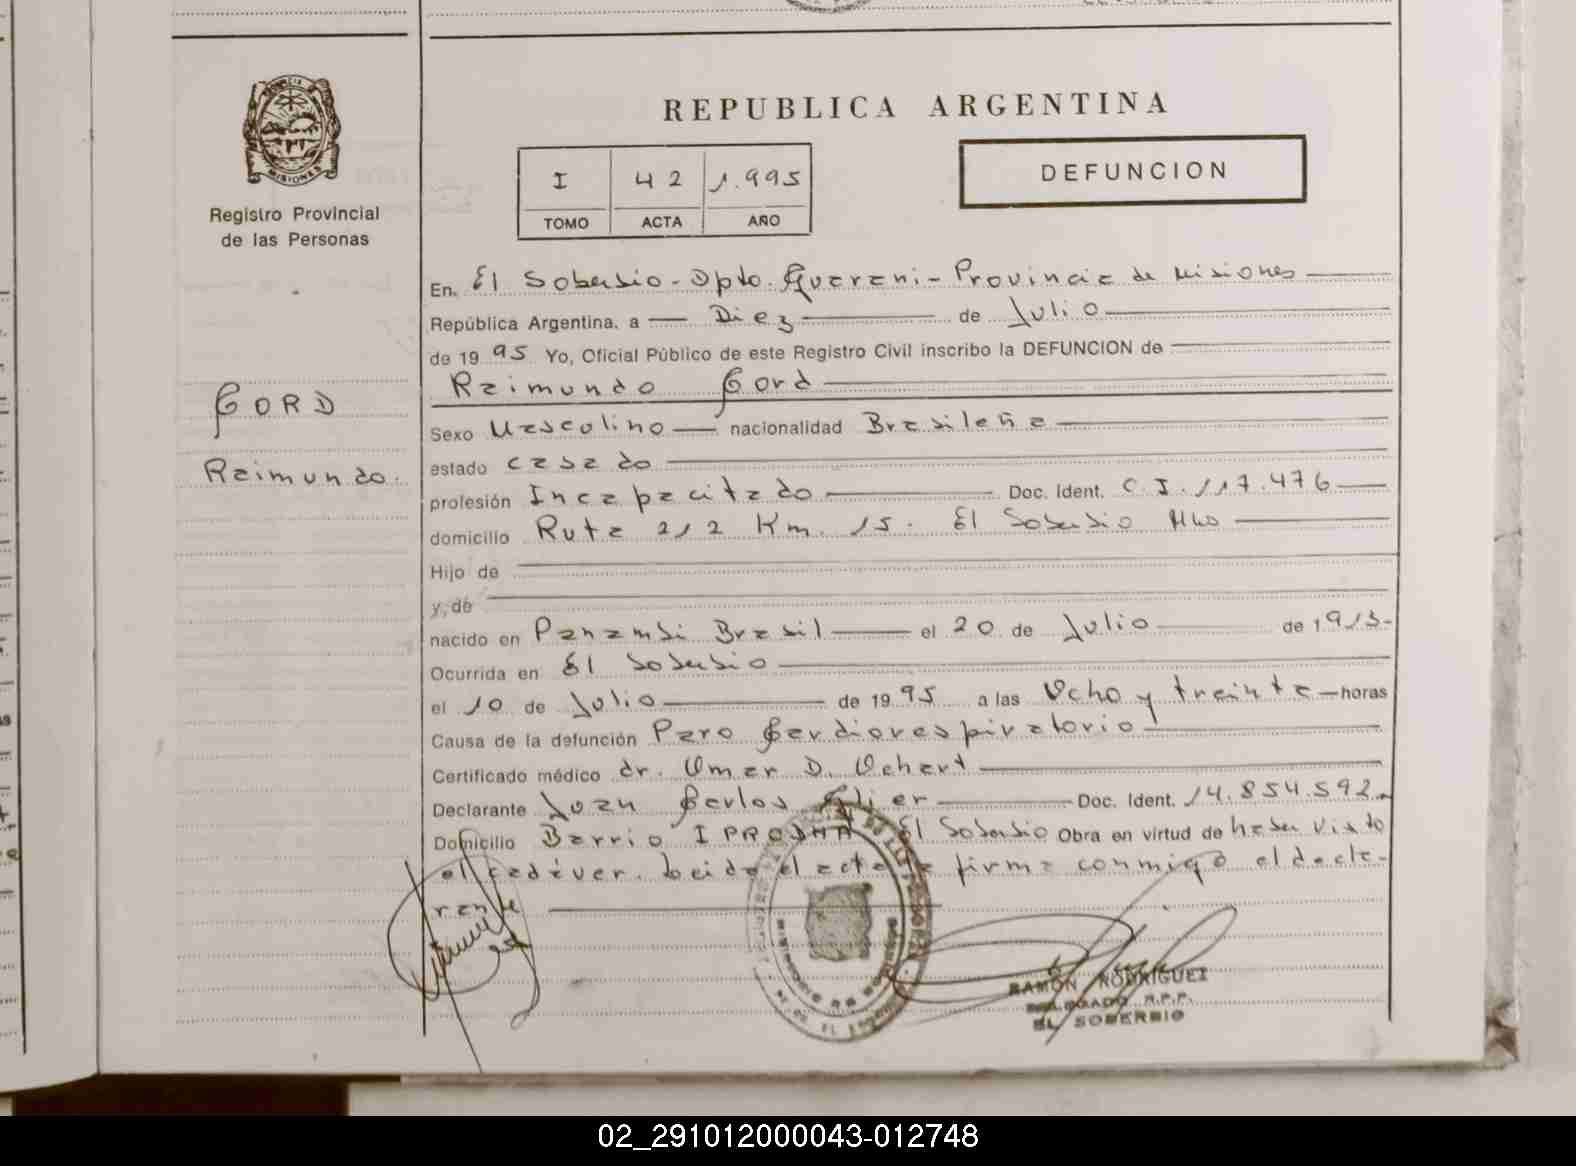 REPUBLICA ARGENTINA
DEFUNCION
I 42 1.995
TOMO ACTA AÑO
MISIONES
Registro Provincial
de las Personas
GORD
Raimundo.
En. El Soberbio - Dpto. Guarani - Provincia de Misiones
República Argentina, a Diez de Julio
de 19 95 Yo, Oficial Público de este Registro Civil inscribo la DEFUNCION de
Raimundo Gord
Sexo Masculino nacionalidad Brasileña
estado casado
profesión Incapacitado Doc. Ident. C.I. 117.476
domicilio Ruta 212 Km. 15. El Soberbio Mnes
Hijo de
y, de
nacido en Panambi Brasil el 20 de Julio de 1913-
Ocurrida en El Soberbio
el 10 de Julio de 19 95 a las Ocho y treinta horas
Causa de la defunción Paro Cardiorespiratorio
Certificado médico dr. Omar D. Ochert
Declarante Juan Carlos Doc. Ident. 14.854.592
Domicilio Barrio IPRODHA El Soberbio Obra en virtud de haber visto
el cadáver. Leida el acta firma conmigo el decla-
rante
RAMON RODRIGUEZ
DELEGADO R.P.P.
EL SOBERBIO
02_291012000043-012748